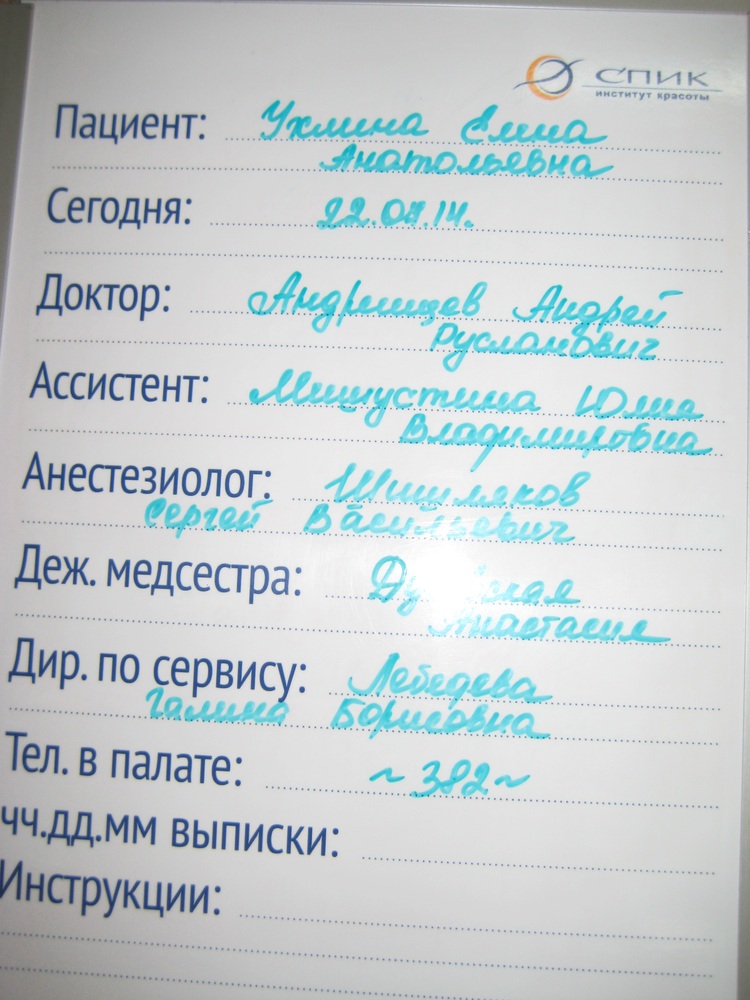 СПИК
институт красоты
Пациент: Ухлина Елена
Анатольевна
Сегодня: 22.07.14.
Доктор: Андреищев Андрей
Русланович
Ассистент: Мишустина Юлия
Владимировна
Анестезиолог: Шишляков
Сергей Васильевич
Деж. медсестра:
Анастасия
Дир. по сервису: Лебедева
Галина Борисовна
Тел. в палате: ~382~
чч.дд.мм выписки:
Инструкции: